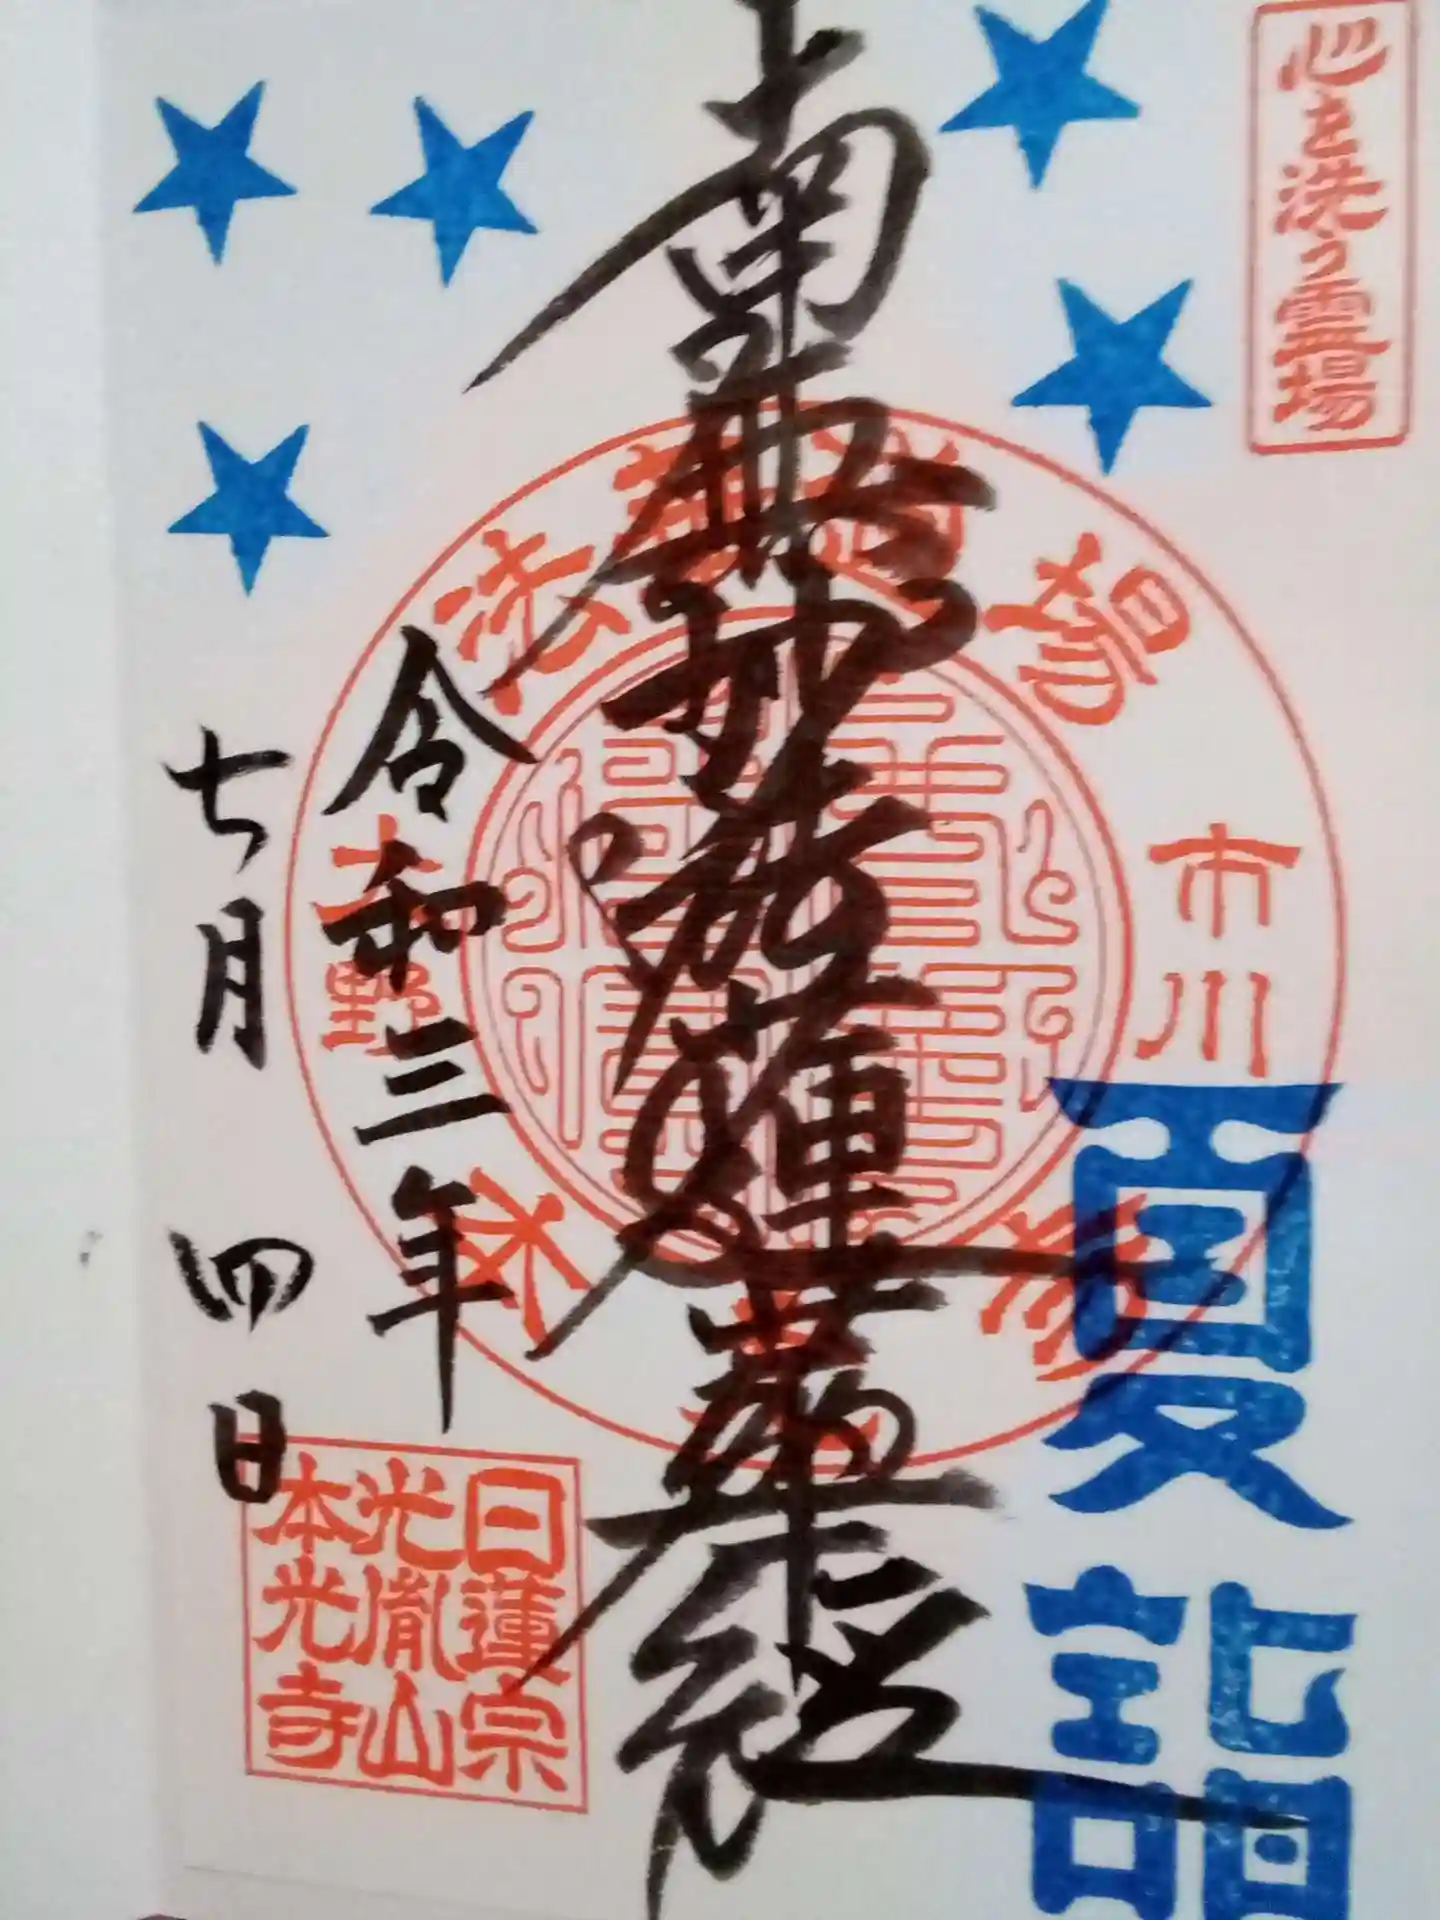 心を洗う霊場
夏詣
市川
南無妙法蓮華経
法華道場
大野
令和三年
七月四日
日蓮宗
光胤山
本光寺